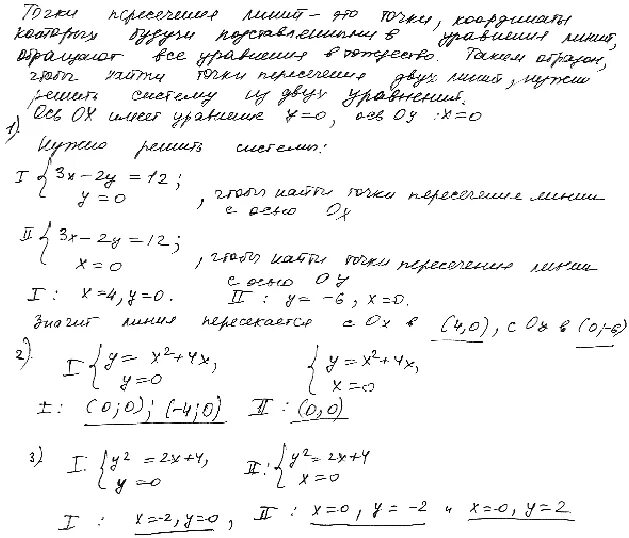 Точки пересечения линий – это точки, координаты
которых будучи подставленными в уравнения линий,
обращают все уравнения в тождество. Таким образом,
чтобы найти точки пересечения двух линий, нужно
решить систему из двух уравнений.
Ось OX имеет уравнение y=0, ось Oy : x=0
1) Нужно решить системы:
I { 3x-2y=12;
y=0 , чтобы найти точки пересечения линии
с осью Ox
II { 3x-2y=12;
x=0 , чтобы найти точки пересечения линии
с осью Oy
I: x=4, y=0. II: y=-6, x=0.
Значит линия пересекается с Ox в (4,0), с Ox в (0;-6)
2) I { y=x²+4x, { y=x²+4x,
y=0 x=0
I: (0;0); (-4;0) II: (0,0)
3) I: { y²=2x+4, II: { y²=2x+4
y=0 x=0
I: x=-2, y=0, II: x=0, y=-2 и x=0, y=2